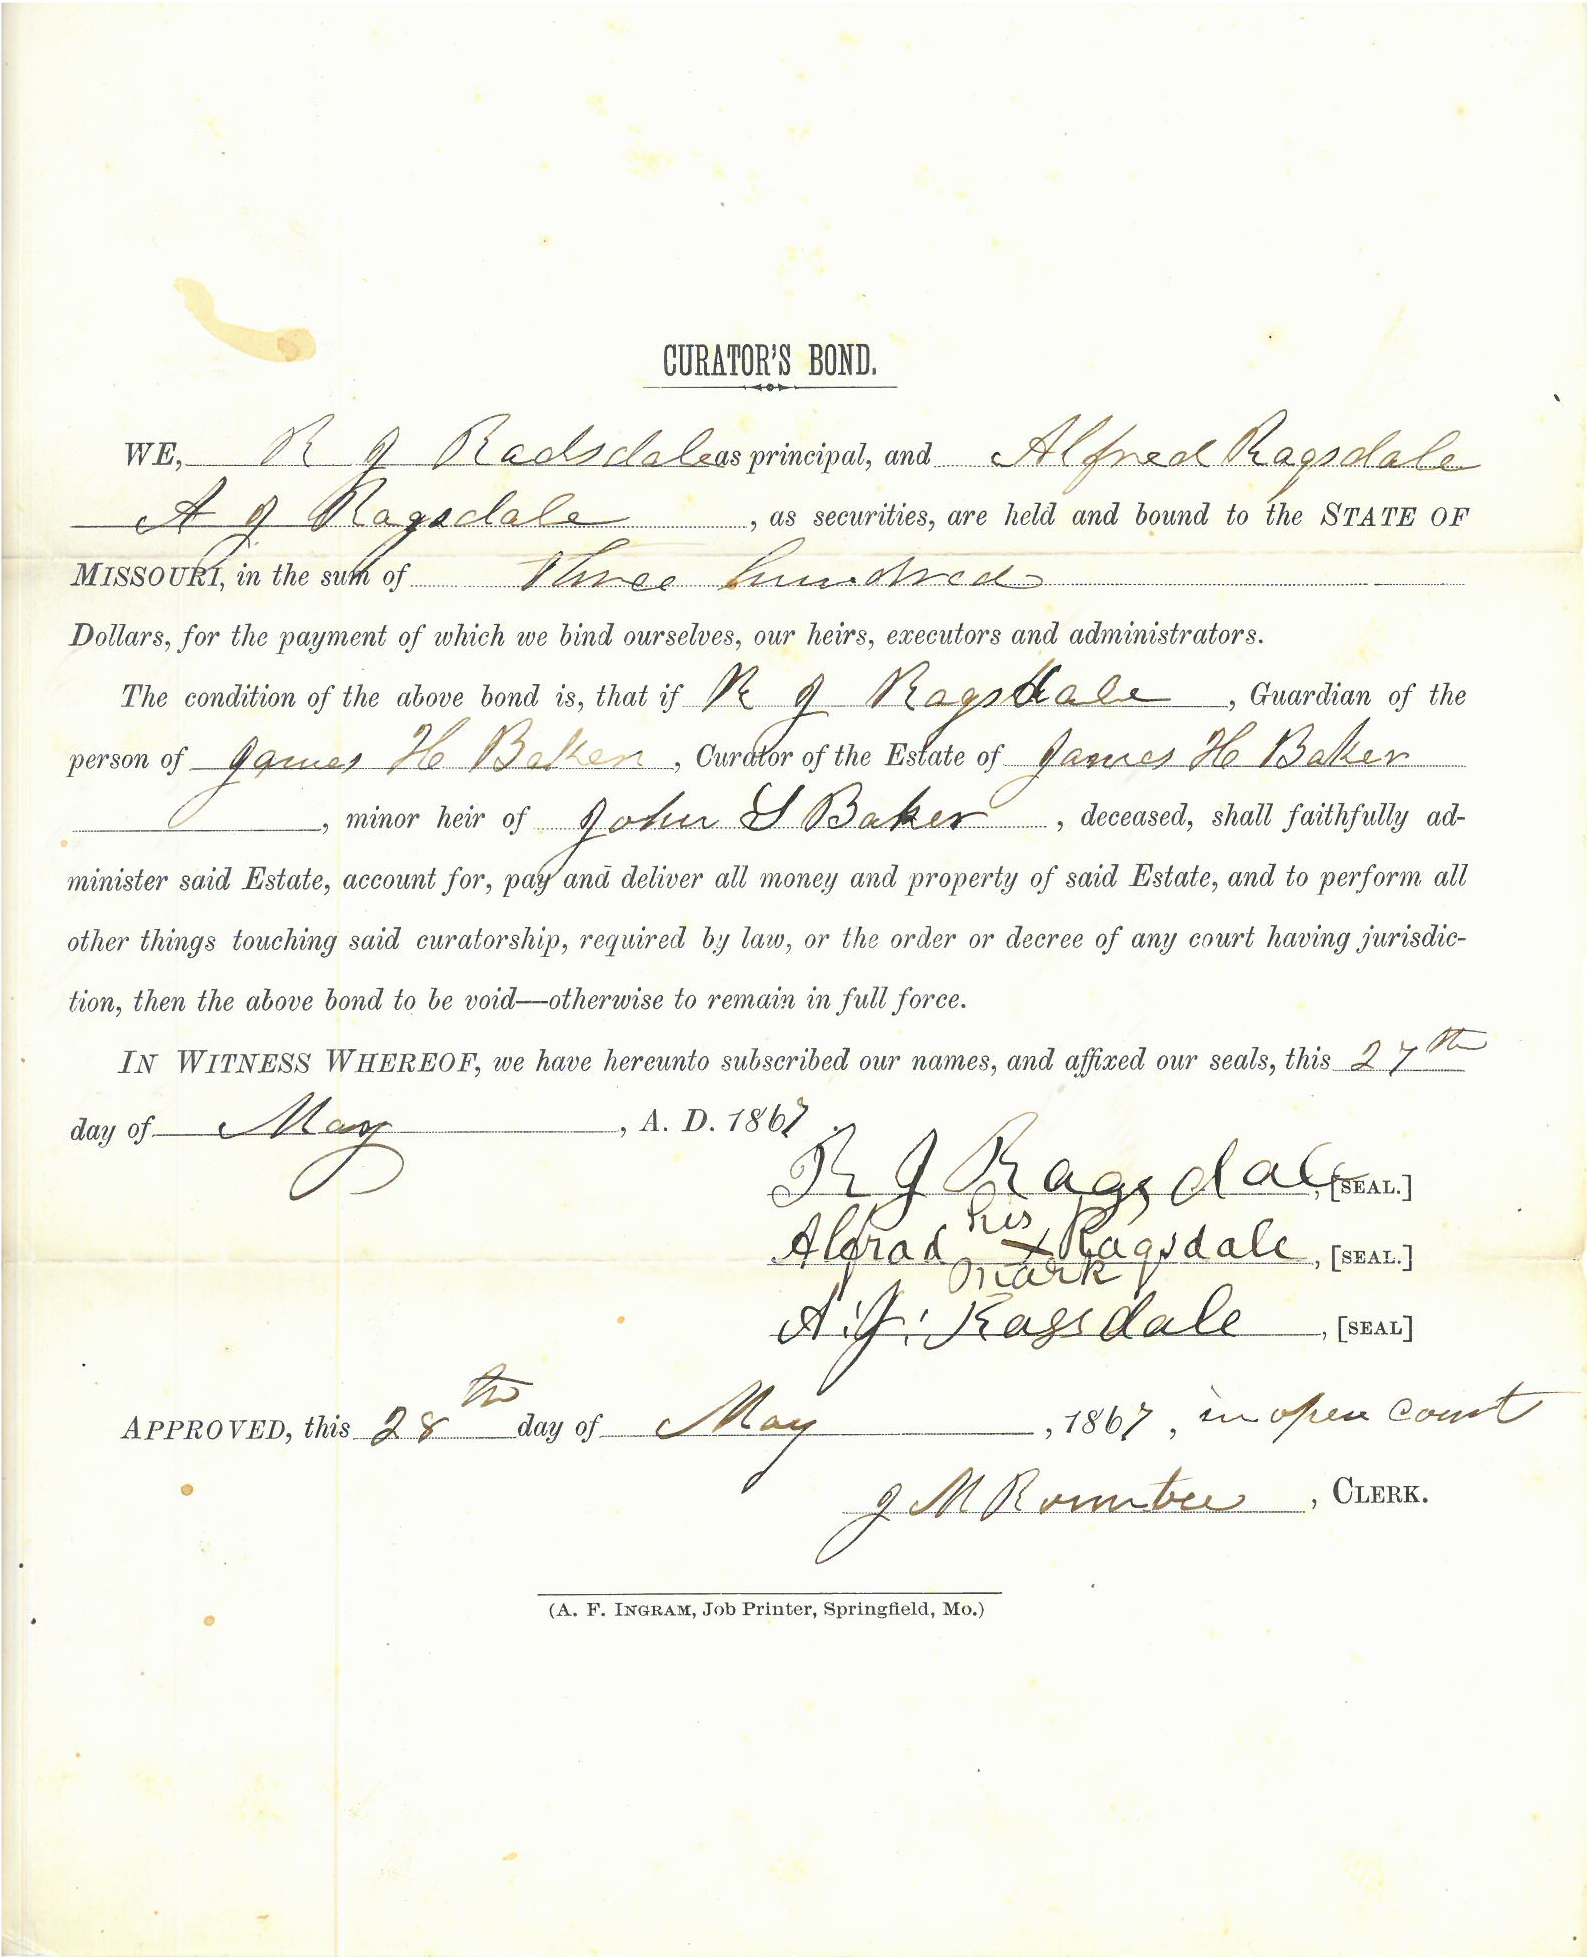 CURATOR'S BOND.
WE, R J Radsdale as principal, and Alfred Ragsdale
A J Ragsdale, as securities, are held and bound to the STATE OF
MISSOURI, in the sum of Three hundred
Dollars, for the payment of which we bind ourselves, our heirs, executors and administrators.
The condition of the above bond is, that if R J Ragsdale, Guardian of the
person of James H Baker, Curator of the Estate of James H Baker
, minor heir of John S Baker, deceased, shall faithfully ad-
minister said Estate, account for, pay and deliver all money and property of said Estate, and to perform all
other things touching said curatorship, required by law, or the order or decree of any court having jurisdic-
tion, then the above bond to be void—otherwise to remain in full force.
IN WITNESS WHEREOF, we have hereunto subscribed our names, and affixed our seals, this 27th
day of May, A. D. 1867.
R J Ragsdale, [SEAL.]
his
Alfrad x Ragsdale, [SEAL.]
mark
A. J. Ragsdale, [SEAL]
APPROVED, this 28th day of May, 1867, in open court
J M Rountree, CLERK.
(A. F. INGRAM, Job Printer, Springfield, Mo.)